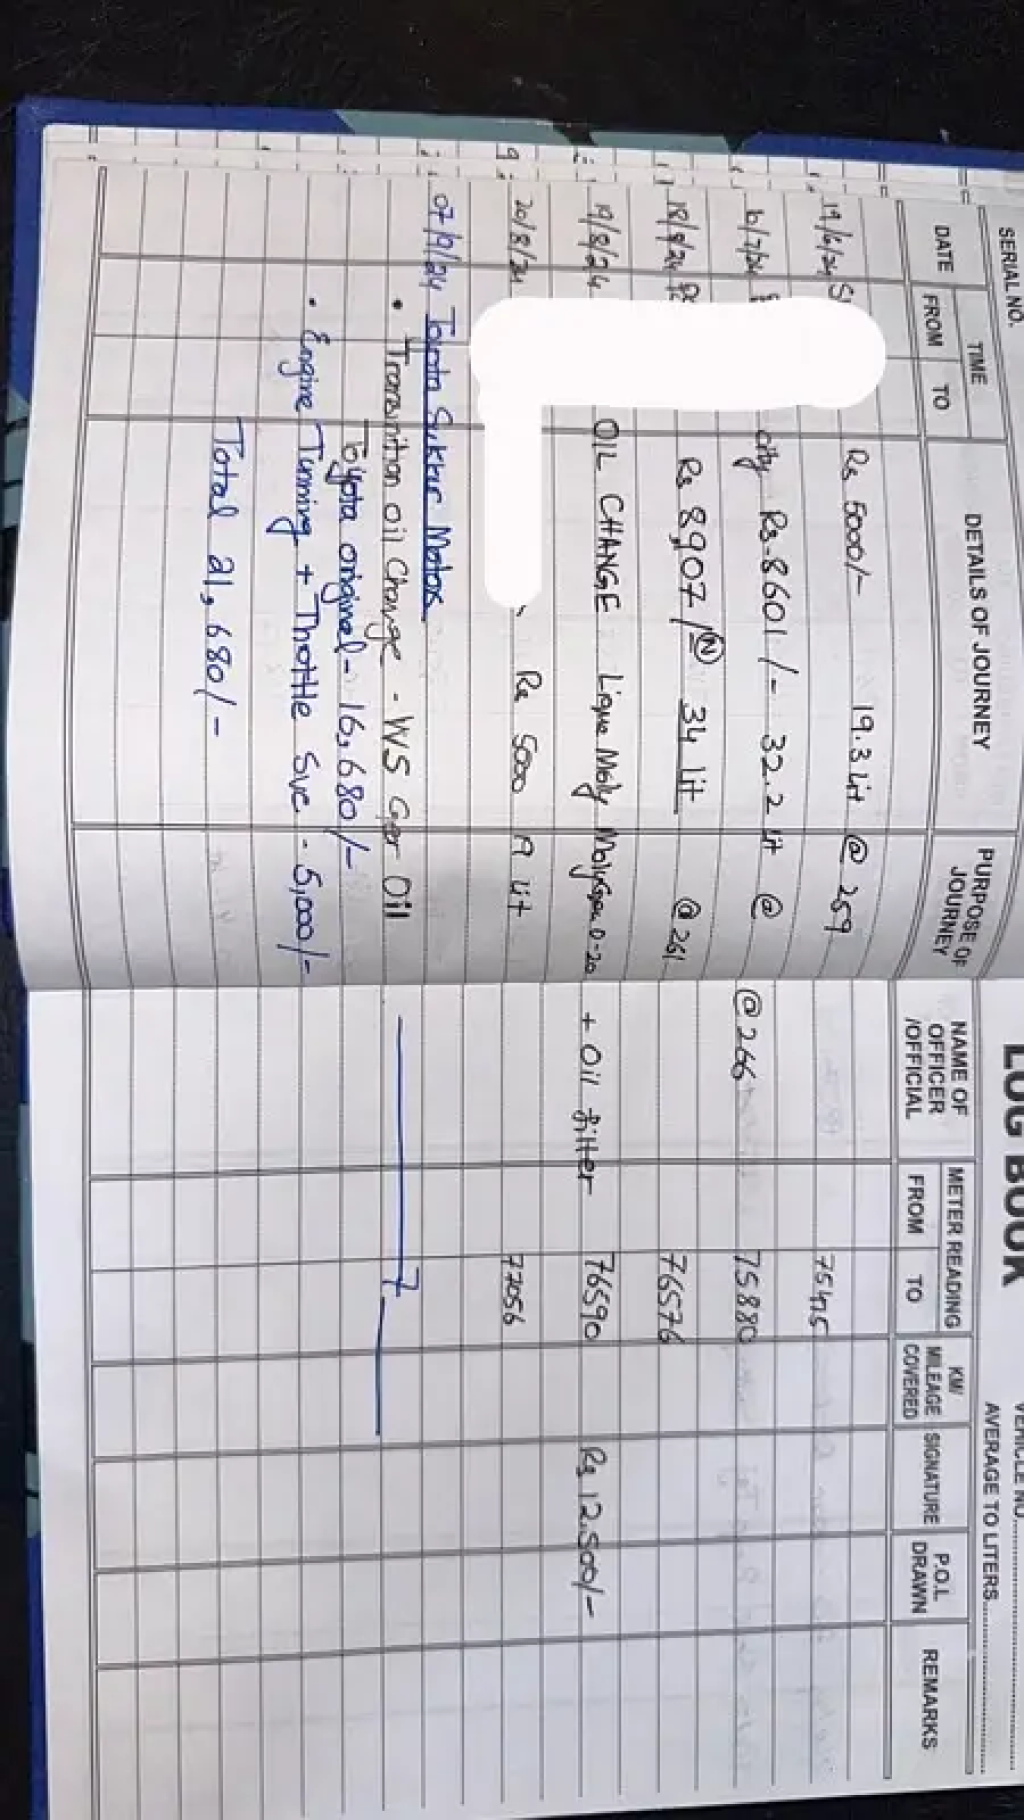 LOG BOOK
VEHICLE NO
SERIAL NO.
AVERAGE TO LITERS
DATE TIME FROM TO DETAILS OF JOURNEY PURPOSE OF JOURNEY NAME OF OFFICER /OFFICIAL METER READING FROM TO KM/ MILEAGE COVERED SIGNATURE P.O.L DRAWN REMARKS
19/6/24 Rs 5000/- 19.3 Lit @ 259 75475
10/7/24 city Rs-8601/- 32.2 Lit @ @266 75880
18/8/24 Rs 8,907/ N 34 Lit @ 261 76576
19/8/24 OIL CHANGE Lique Moly Molygen 0-20 + Oil filter 76590 Rs 12,500/-
20/8/24 Rs 5000 19 Lit 77056
07/9/24 Toyota Sukkur Motors
• Transmition oil Change - WS Ger Oil
Toyota original - 16,680/-
• Engine Tunning + Thottle Sve - 5,000/-
Total 21,680/-